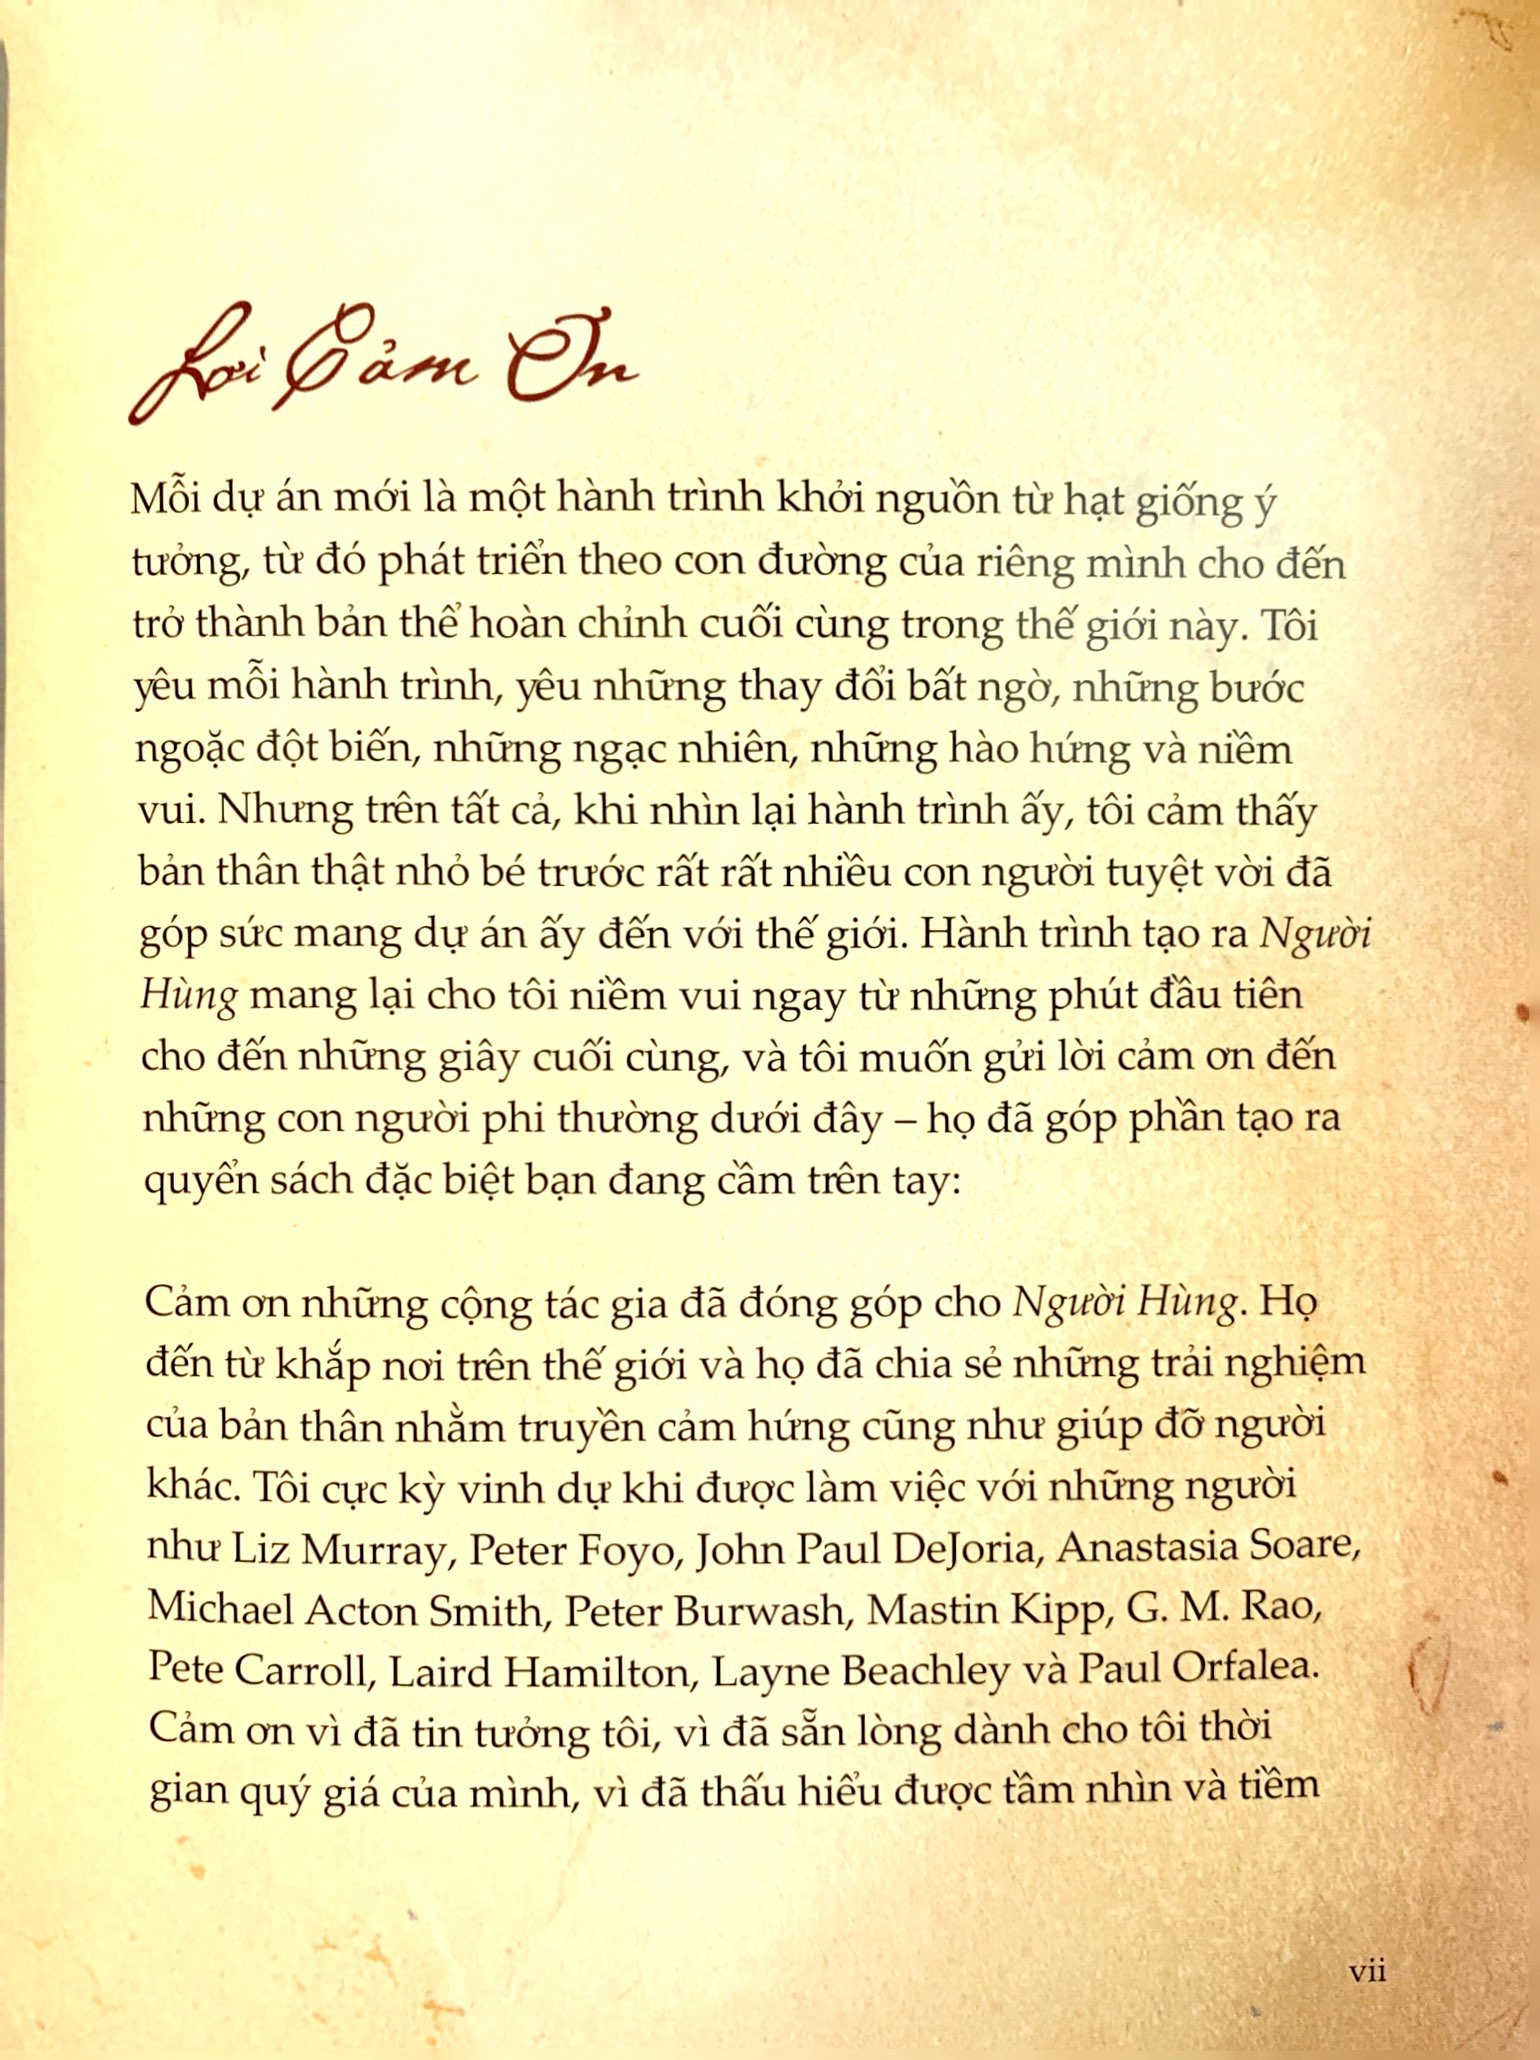 Lời Cảm Ơn
Mỗi dự án mới là một hành trình khởi nguồn từ hạt giống ý
tưởng, từ đó phát triển theo con đường của riêng mình cho đến
trở thành bản thể hoàn chỉnh cuối cùng trong thế giới này. Tôi
yêu mỗi hành trình, yêu những thay đổi bất ngờ, những bước
ngoặc đột biến, những ngạc nhiên, những hào hứng và niềm
vui. Nhưng trên tất cả, khi nhìn lại hành trình ấy, tôi cảm thấy
bản thân thật nhỏ bé trước rất rất nhiều con người tuyệt vời đã
góp sức mang dự án ấy đến với thế giới. Hành trình tạo ra Người
Hùng mang lại cho tôi niềm vui ngay từ những phút đầu tiên
cho đến những giây cuối cùng, và tôi muốn gửi lời cảm ơn đến
những con người phi thường dưới đây – họ đã góp phần tạo ra
quyển sách đặc biệt bạn đang cầm trên tay:
Cảm ơn những cộng tác gia đã đóng góp cho Người Hùng. Họ
đến từ khắp nơi trên thế giới và họ đã chia sẻ những trải nghiệm
của bản thân nhằm truyền cảm hứng cũng như giúp đỡ người
khác. Tôi cực kỳ vinh dự khi được làm việc với những người
như Liz Murray, Peter Foyo, John Paul DeJoria, Anastasia Soare,
Michael Acton Smith, Peter Burwash, Mastin Kipp, G. M. Rao,
Pete Carroll, Laird Hamilton, Layne Beachley và Paul Orfalea.
Cảm ơn vì đã tin tưởng tôi, vì đã sẵn lòng dành cho tôi thời
gian quý giá của mình, vì đã thấu hiểu được tầm nhìn và tiềm
vii